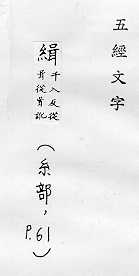 五經文字
緝
千入反從
咠從咠訛
(糸部, P.61)